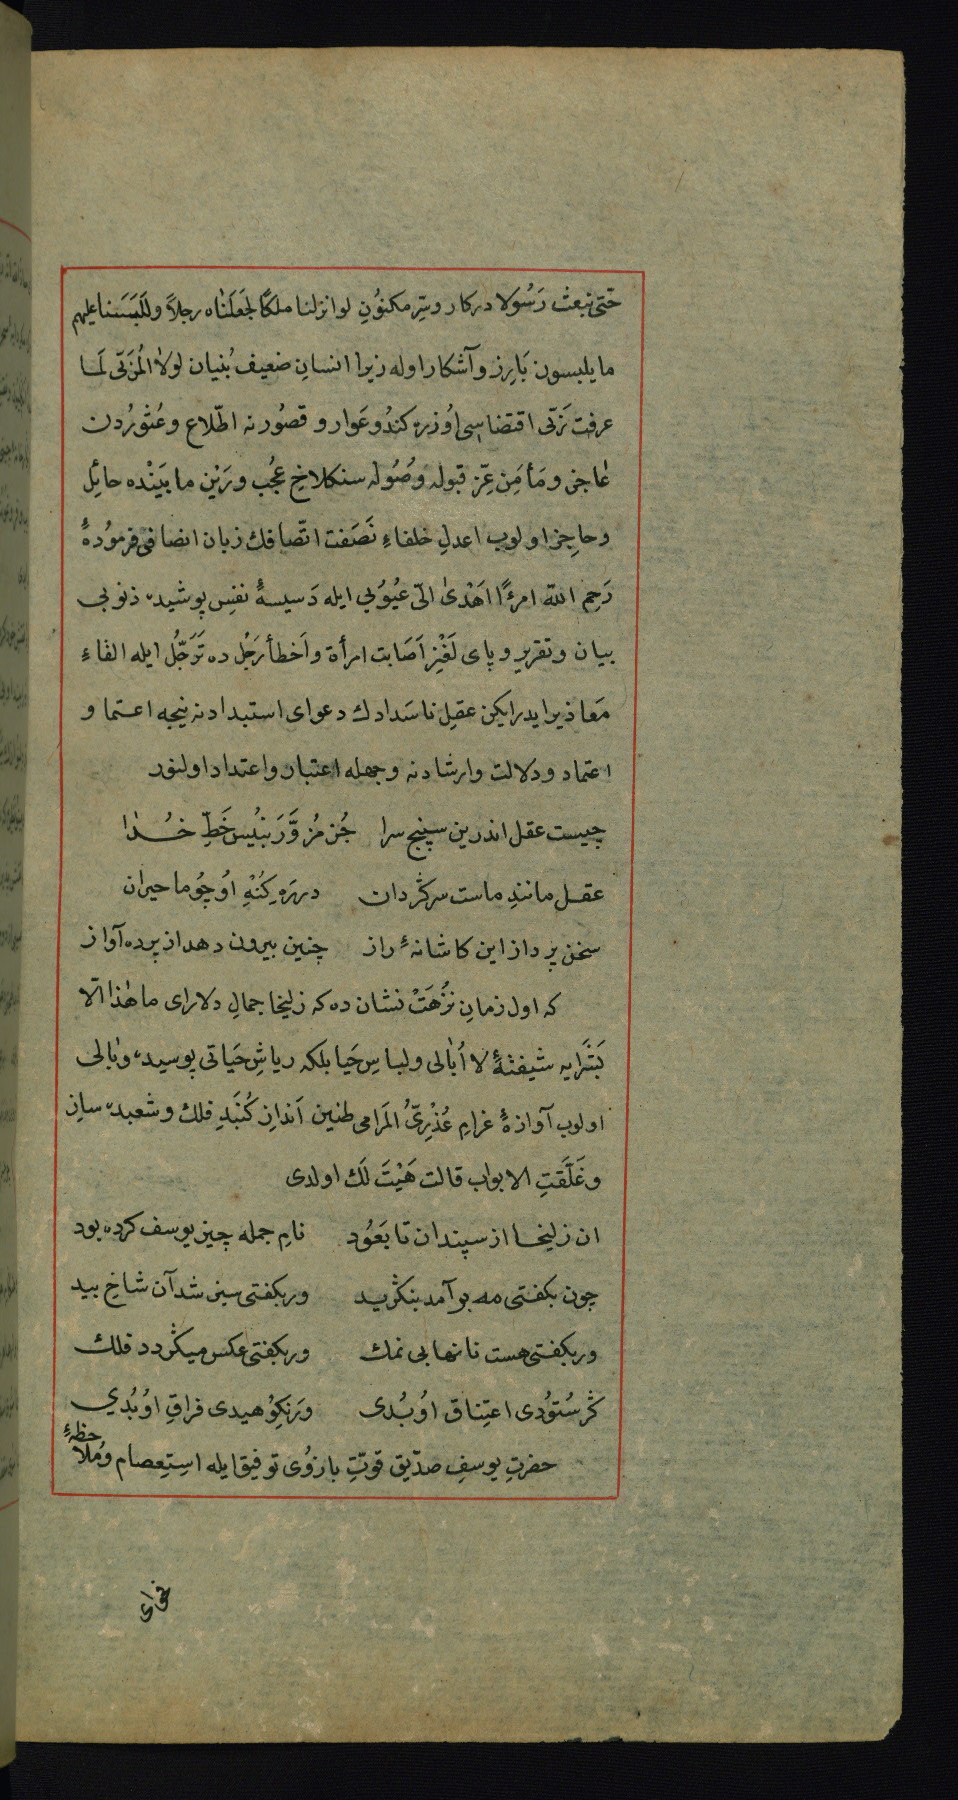 حَتّى نبعث رَسُولا دركار وسِرِّ مكنوُنِ لوانزلنا ملكًا لَجَعَلنَاه رجلاً وللَبَسَنا عليهم
مايلبسون بَارِز وآشكار اوله زيرا انسانِ ضعيف بُنيان لولاٰ المُرَبّى لَما
عرفت رَبّى اقتضاسى اوُزره كندُو عَوار و قصُورنه اطّلاع وعُثوُردن
عٰاجز ومَأمَنِ عِّز قبوله وُصُوله سنكلاخِ عُجُب ورَيْن مابَيْنْده حائِل
وحاجِز اولوب اعدلِ خلفاءِ نَصَفت اتّصافك زبان انصافى فرموُدهٔ
رَحِمَ اللّه امرءًا اَهْدىٰ الىّ عُيوُبي ايله دَسيسهٔ نفسِ پوشيده ذنوبى
بيان وتقرير و پاى لَغْزِ اَصَابت امرأة واَخطأ رَجُل ده تَرَجُّل ايله القاءِ
مَعاذير ايدرايكن عقلِ ناسَدادك دعواى استبدادنه نيجه اعتما و
اعتماد ودلالت وارشادنه وجهله اعتبار واعتداد اولنور
چيست عقل اندرين سپنج سرا جُز مُزوَّرنبُيس خَطِّ خُدٰا
عقل مانندِ ماست سركَردان درره كُنْهِ اوُ چوُما حيران
سخن پرداز اين كاشانهٔ راز چنين بيرون دهد از پرده آواز
كه اول زمانِ نُزهَتْ نشان ده كه زليخا جمالِ دلاراى ماهٰذا الّا
بَشَرًايه شيفتهٔ لا اُبٰالى ولباسِ حَيا بلكه رياشِ حَياتى پوسيده وبٰالى
اولوب آوازهٔ غرامِ عُذْرِىُّ المَرامى طنين اَندازِ كُنبَدِ فلك وشعبده سازِ
وغَلَّقَتِ الابواب قالت هَيْتَ لَك اولدى
ان زليخا از سپندان تابَعُود نامِ جمله چيز يوسف كرده بود
چون بكفتى مه برآمد بنكَريد وربكفتى سبز شد آن شاخِ بيد
وربكفتى هست نانها بى نمك وربكفتى عكس ميكَردد فلك
كَرستُودى اعتِناق اوُبُدى ورَنِكوُهيدى فراقِ اوُبُدي
حضرتِ يوسفِ صدّيق قوّتِ بازوُى توفيق ايله استِعصام ومُلاحظهٔ